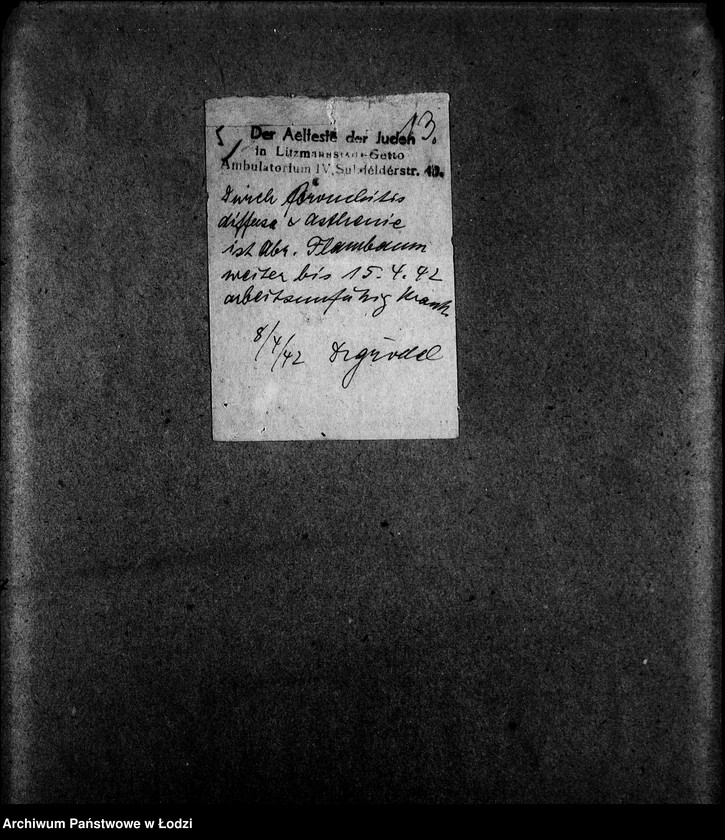 13.
5
Der Aelteste der Juden
in Litzmannstadt-Getto
Ambulatorium IV, Sulzfelderstr.
Durch Bronchitis
diffusa & Asthenie
ist Abr. Flambaum
weiter bis 15. 4. 42
arbeitsunfähig krank.
8/4/42
Archiwum Państwowe w Łodzi